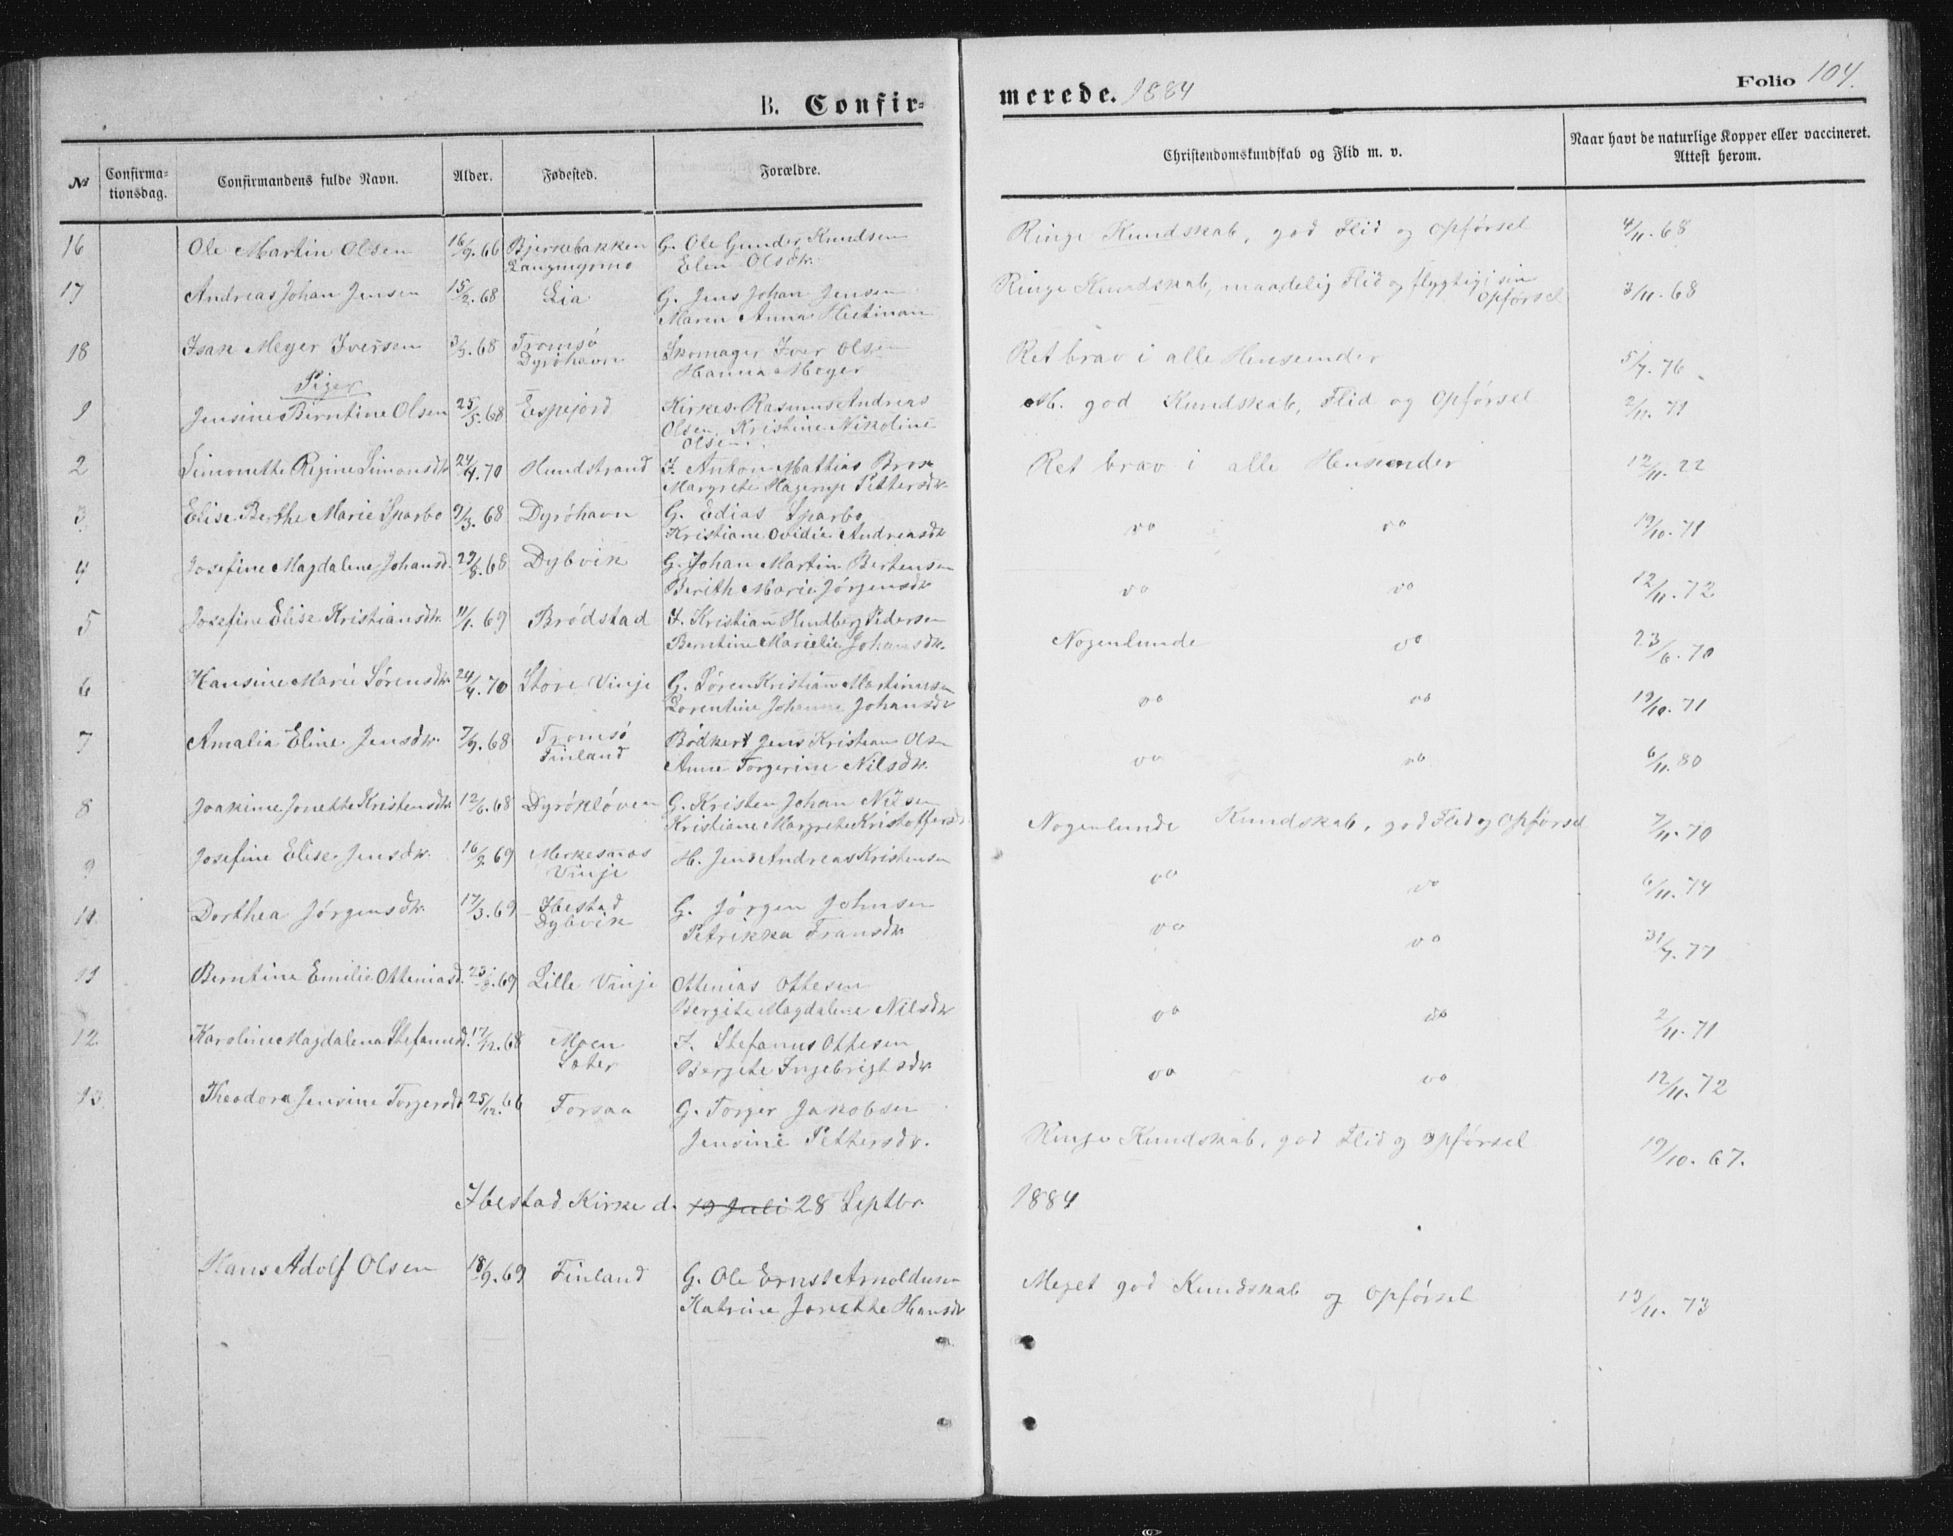 B. Confir-
merede. 1884
Folio 104.
№
Confirma-
tionsdag.
Confirmandens fulde Navn.
Alder.
Fødested.
Forældre.
Christendomskundskab og Flid m. v.
Naar havt de naturlige Kopper eller vaccineret.
Attest herom.
16 Ole Martin Olsen 16/9.66 Bjerkebakken G. Ole Gunder Knudsen Ringe Kundskab, god Flid og Opførsel 4/11.68
Elen Olsdtr.
17 Andreas Johan Jensen 15/2.68 Lia G. Jens Johan Jensen Ringe Kundskab, maadelig Flid og flygtig i sin 3/11.68
Maren Anna Opførsel
18 Isak Meyer Iversen 3/3.68 Tromsø Skomager Iver Olsen Ret brav i alle Henseender 5/7.76
Dyröhavn Hanna Meyer
Piger
1 Jensine Berntine Olsen 25/5.68 Espejord Kirkes. Rasmus Andreas god Kundskab, Flid og Opførsel 2/11.71
Olsen, Kristine Nikoline
Olsen.
2 Simonette Regine Simonsdtr. 24/4.70 Hundstrand F. Anton Mathias Ret brav i alle Henseender 12/11.22
Margrete Hagerup Pettersdtr.
3 Elise Berthe Marie Sparbo 9/3.68 Dyröhavn G. Edias Sparbo do do 19/10.71
Kristiane Ovidia Andreasdtr
4 Josefine Magdalene Johansd. 29/8.68 Dybvik G. Johan Martin Bertensen do do 12/11.72
Berith Marie Jörgensdtr
5 Josefine Elise Kristiansdtr. 11/1.69 Brödstad F. Kristian Hendberg Pedersen Nogenlunde do 23/6.70
Berntine Marielie Johansdtr.
6 Hansine Marie Sörensdtr. 24/4.70 Store Vinje G. Sören Kristian Martinusen do do 19/10.71
Lorentine Johanna Johansdtr
7 Amalia Eline Jensdtr. 7/9.68 Tromsö Bödker Jens Kristian Olsen do do 6/11.80
Finland Anne Torgerine Nilsdtr.
8 Joakime Jonette Kristensdtr. 12/6.68 Dyröklöven G. Kristen Johan Nilsen Nogenlunde Kundskab, god Flid og Opførsel 7/11.70
Kristiane Margrete Kristoffersd.
9 Josefine Elise Jensdtr. 16/2.69 H. Jens Andreas Kristensen do do 6/11.74
Vinje
10 Dorthea Jörgensdtr. 17/3.69 Ibestad G. Jörgen Johnsen do do 31/7.77
Dybvik Petrikka Fransdtr.
11 Berntine Emilie Otteniasd. 23/3.69 Lille Vinje Ottenias Ottesen do do 2/11.71
Bergite Magdalene Nilsdtr
12 Karoline Magdalena Stefanusd. 17/12.68 Moen F. Stefanus Ottesen do do 12/11.72
Sæter Bergete Ingebrigtsdtr.
13 Theodora Jensine Torgersdtr 25/12.66 Forsaa G. Torger Jakobsen Ringe Kundskab, god Flid og Opførsel 19/10.67.
Jensine Pettersdtr.
Ibestad Kirke d. 19 Juli 28 Septbr 1884
Hans Adolf Olsen 18/9.69 Finland G. Ole Ernst Arnoldusen Meget god Kundskab og Opførsel 13/11.73
Katrine Jonette Hansdtr